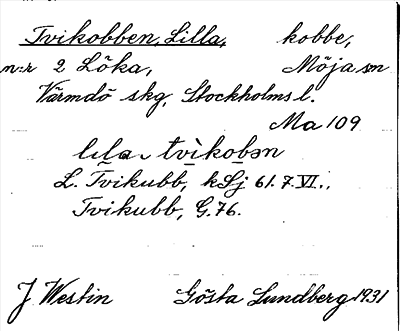 Tvikobben, Lilla, kobbe,
n:r 2 Löka, Möja sn
Värmdö skg, Stockholms l.
Ma 109
lɩla tvìkobən
L. Tvikubb, kSj 61. 7. VI.,
Tvikubb, G. 76.
J Westin Gösta Lundberg 1931